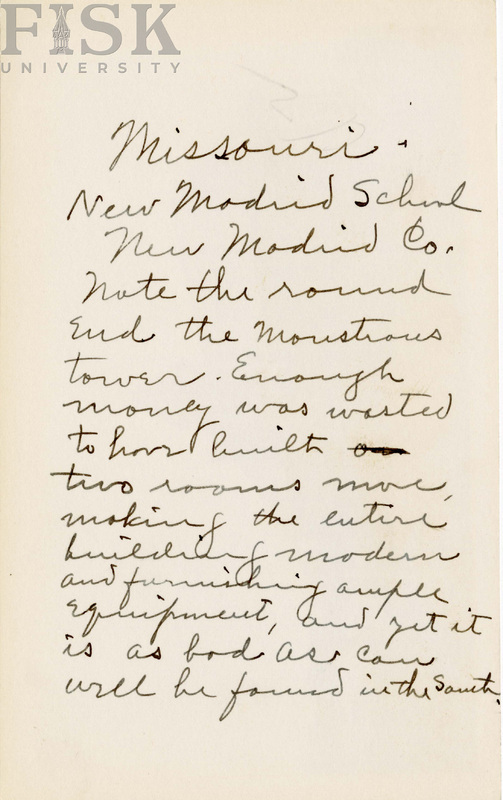 FISK
UNIVERSITY
Missouri.
New Madrid School
New Madrid Co.
Note the round
End the monstrous
tower. Enough
money was wasted
to have built
two rooms more,
making the entire
building modern
and furnishing ample
equipment, and yet it
is as bad as can
well be found in the South.